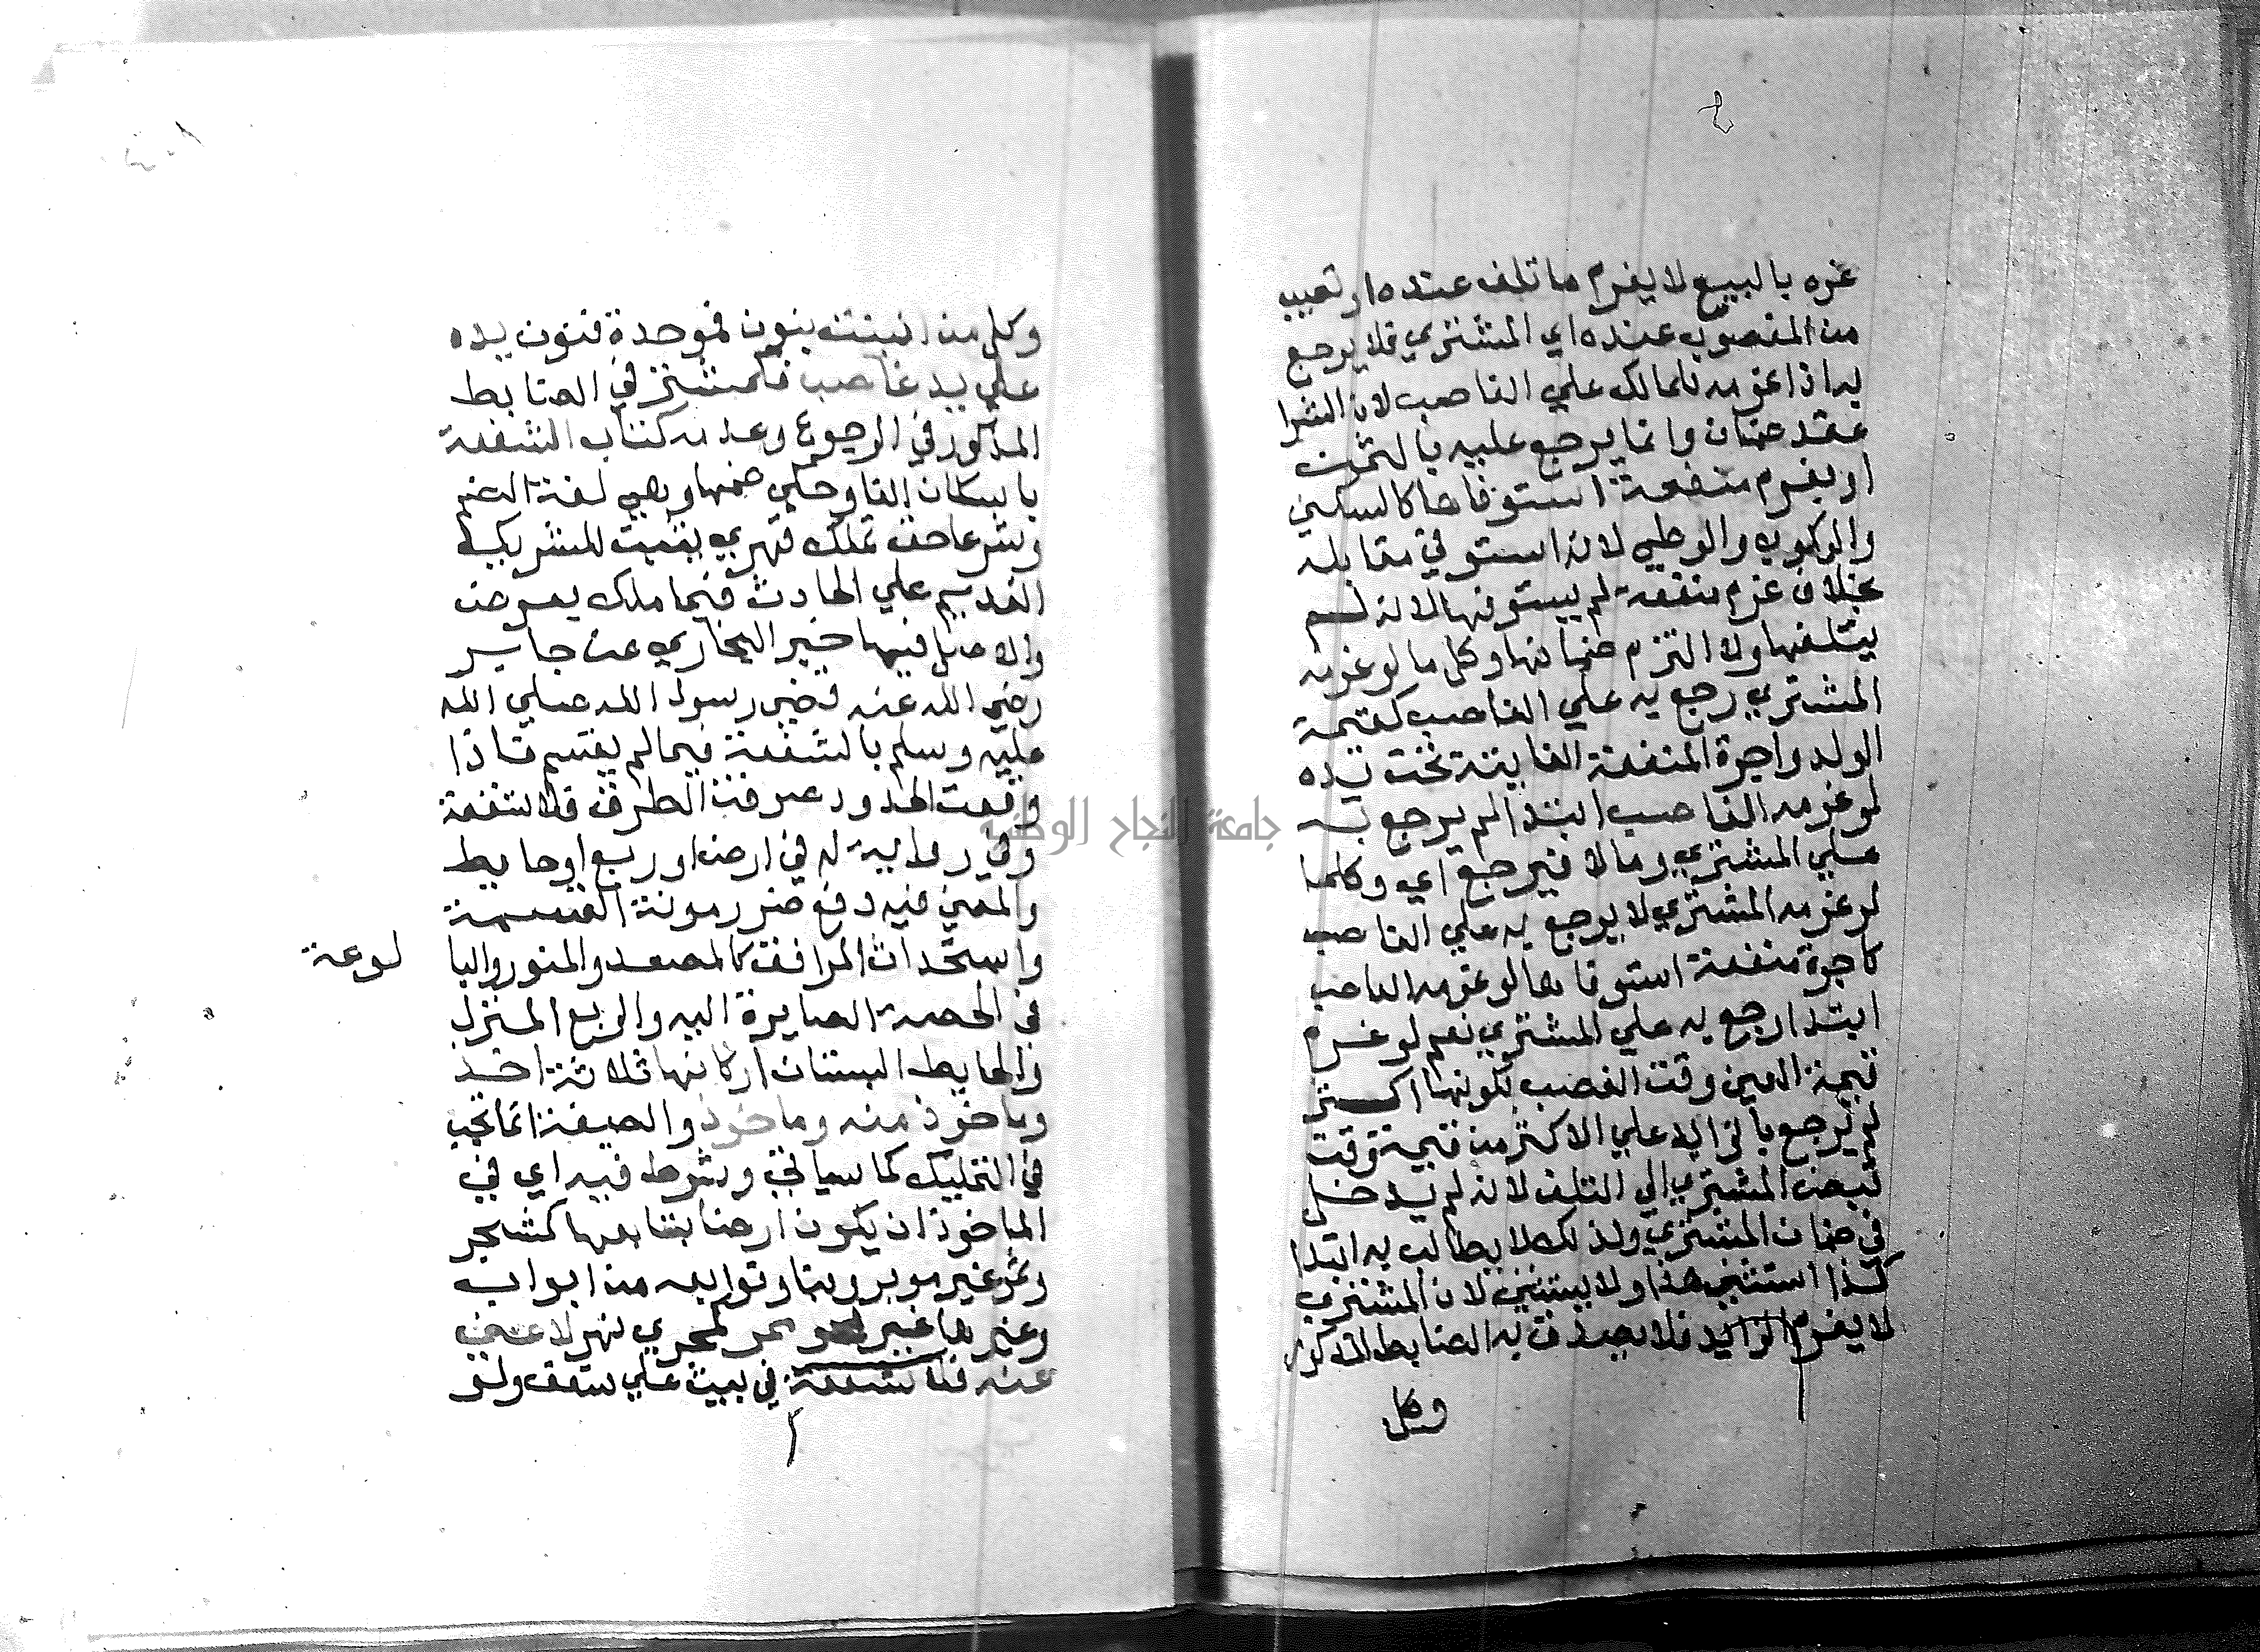 غره بالبيع لا يغرم ما تلف عنده او تعيب
من المغصوب عنده اي المشتري فلا يرجع
به اذا غرمه للمالك علي الغاصب لان الشرا
عقد ضمان وانما يرجع عليه بالثمن
او يغرم منفعة استوفاها كالسكني
والركوب والوطي لانه استوفي مقابله
بخلاف غرم منفعة لم يستوفها لانه لم
يتلفها ولا التزم ضمانها وكل ما لو غرمه
المشتري رجع به علي الغاصب كقيمة
الولد واجرة المنفعة الفايتة تحت يده
لو غرمه الغاصب ابتدا لم يرجع به
علي المشتري وما لا فيرجع اي وكلما
لو غرمه المشتري لا يرجع به علي الغاصب
كاجرة منفعة استوفاها لو غرمه الغاصب
ابتدا رجع به علي المشتري نعم لو غرم
قيمة العين وقت الغصب لكونها اكثر
لم يرجع بالزايد علي الاكثر من قيمة وقت
قبض المشتري الي التلف لانه لم يدخل
في ضمان المشتري ولذلك لا يطالب به ابتدا
كذا استثني هذا ولا يستثني لان المشتري
لا يغرم الزايد فلا يصدق به الضابط المذكور
وكل
وكل من انبنت بنون فموحدة فنون يده
علي يد غاصب فكمشتر في الضابط
المذكور في الرجوع وعدمه كتاب الشفعة
باسكان الفا وحكي ضمها وهي لغة الضم
وشرعا حق تملك قهري يثبت للشريك
القديم علي الحادث فيما ملك بعوض
والاصل فيها خبر البخاري عن جابر
رضي الله عنه قضي رسول الله صلي الله
عليه وسلم بالشفعة فيما لم يقسم فاذا
وقعت الحدود وصرفت الطرق فلا شفعة
وفي رواية له في ارض او ربع او حايط
والمعني فيه دفع ضرر مونة القسمة
واستحداث المرافق كالمصعد والمنور والبا
لوعة
في الحصة الصايرة اليه والربع المنزل
والحايط البستان اركانها ثلاثة اخذ
وماخوذ منه وماخوذ والصيغة انما تجب
في التمليك كما سياتي وشرط فيه اي في
الماخوذ ان يكون ارضا بتابعها كشجر
وثمر غير موبر وبنا وتوابعه من ابواب
وغيرها غير نحو ممر كمجري نهر لا غني
عنه فلا شفعة في بيت علي سقف ولو